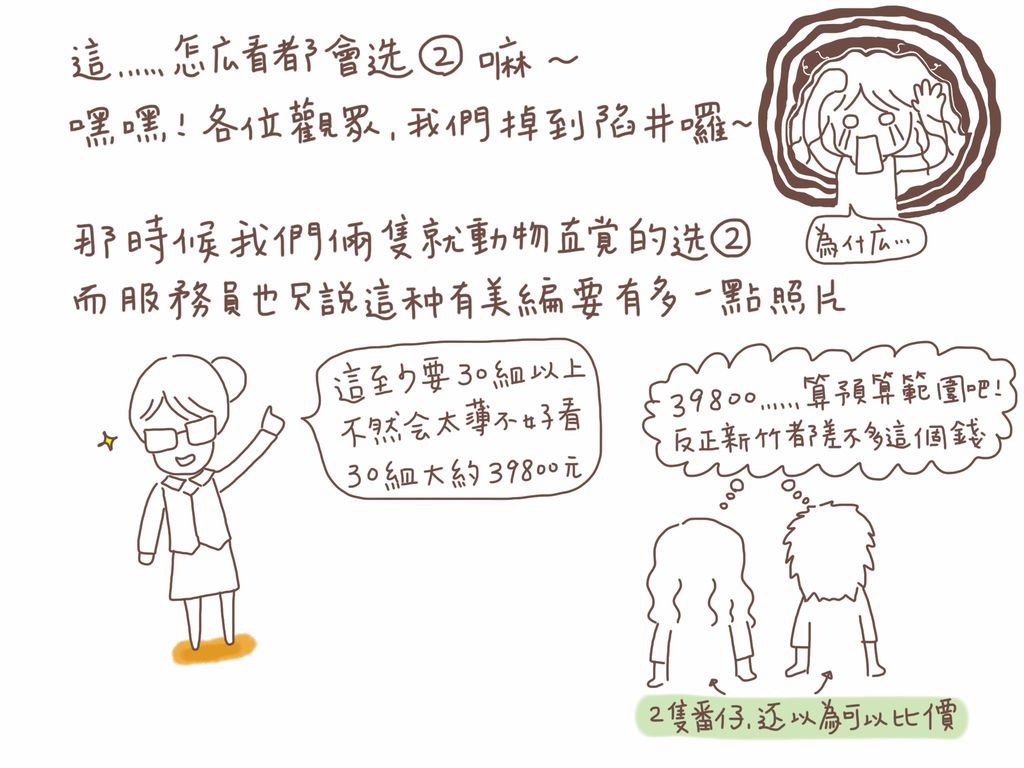 這......怎広看都會选② 嘛～
嘿嘿!各位觀眾,我們掉到陷井囉~
為什広...
那時候我們倆隻就動物直覚的选②
而服務員也只說這种有美編要有多一點照片
這至少要30組以上
不然会太薄不好看
30組大約39800元
39800......算預算範圍吧!
反正新竹都差不多這個錢
2隻番仔,还以為可以比價